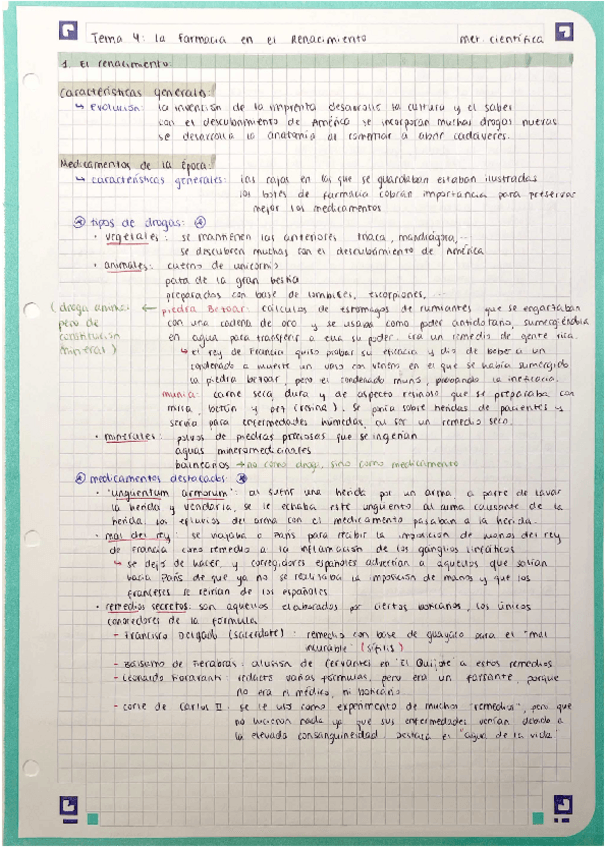 Tema 4: La Farmacia en el Renacimiento met. científica
1. El renacimiento
Características generales:
↳ evolución: la invención de la imprenta desarrolló la cultura y el saber
con el descubrimiento de América se incorporan muchas drogas nuevas
se desarrolla la anatomía al comenzar a abrir cadáveres.
Medicamentos de la Época:
↳ características generales: las cajas en las que se guardaban estaban ilustradas
los botes de farmacia cobran importancia para preservar
mejor los medicamentos
tipos de drogas:
· vegetales: se mantienen las anteriores triaca, mandrágora,...
se descubren muchas con el descubrimiento de América
· animales: cuerno de unicornio
pata de la gran bestia
preparados con base de lombrices, escorpiones, ...
(droga animal ← piedra Bezoar: cálculos de estómagos de rumiantes que se engarzaban
pero de con una cadena de oro y se usaban como poder antidotario, sumergiéndola
constitución en agua para transferir a ella su poder. Era un remedio de gente rica.
mineral) ↳ el rey de Francia quiso probar su eficacia y dio de beber a un
condenado a muerte un vaso con veneno en el que se había sumergido
la piedra bezoar, pero el condenado murió, probando la ineficacia.
mumia: carne seca, dura y de aspecto resinoso que se preparaba con
mirra, betún y pez (resina). Se ponía sobre heridas de pacientes y
servía para enfermedades húmedas, al ser un remedio seco.
· minerales: polvos de piedras preciosas que se ingerían
aguas mineromedicinales
balnearios → no como droga, sino como medicamento
medicamentos destacados:
· "unguentum armorum": al sufrir una herida por un arma, a parte de lavar
la herida y vendarla, se le echaba este ungüento al arma causante de la
herida. Los efluvios del arma con el medicamento pasaban a la herida.
· mal del rey: se viajaba a París para recibir la imposición de manos del rey
de Francia como remedio a la inflamación de los ganglios linfáticos
↳ se dejó de hacer, y corregidores españoles advertían a aquellos que salían
hacia París de que ya no se realizaba la imposición de manos y que los
franceses se reirían de los españoles
· remedios secretos: son aquellos elaborados por ciertos boticarios, los únicos
conocedores de la fórmula
- Francisco Delgado (sacerdote): remedio con base de guayaco para el "mal
incurable" (sífilis)
- Bálsamo de Fierabrás: alusión de Cervantes en "El Quijote" a estos remedios
- Leonardo Fioravanti: redactó varias fórmulas, pero era un farsante, porque
no era ni médico, ni boticario
- corte de Carlos II: se le usó como experimento de muchos "remedios", pero que
no hicieron nada ya que sus enfermedades venían debido a
la elevada consanguineidad. Destaca el "agua de la vida"